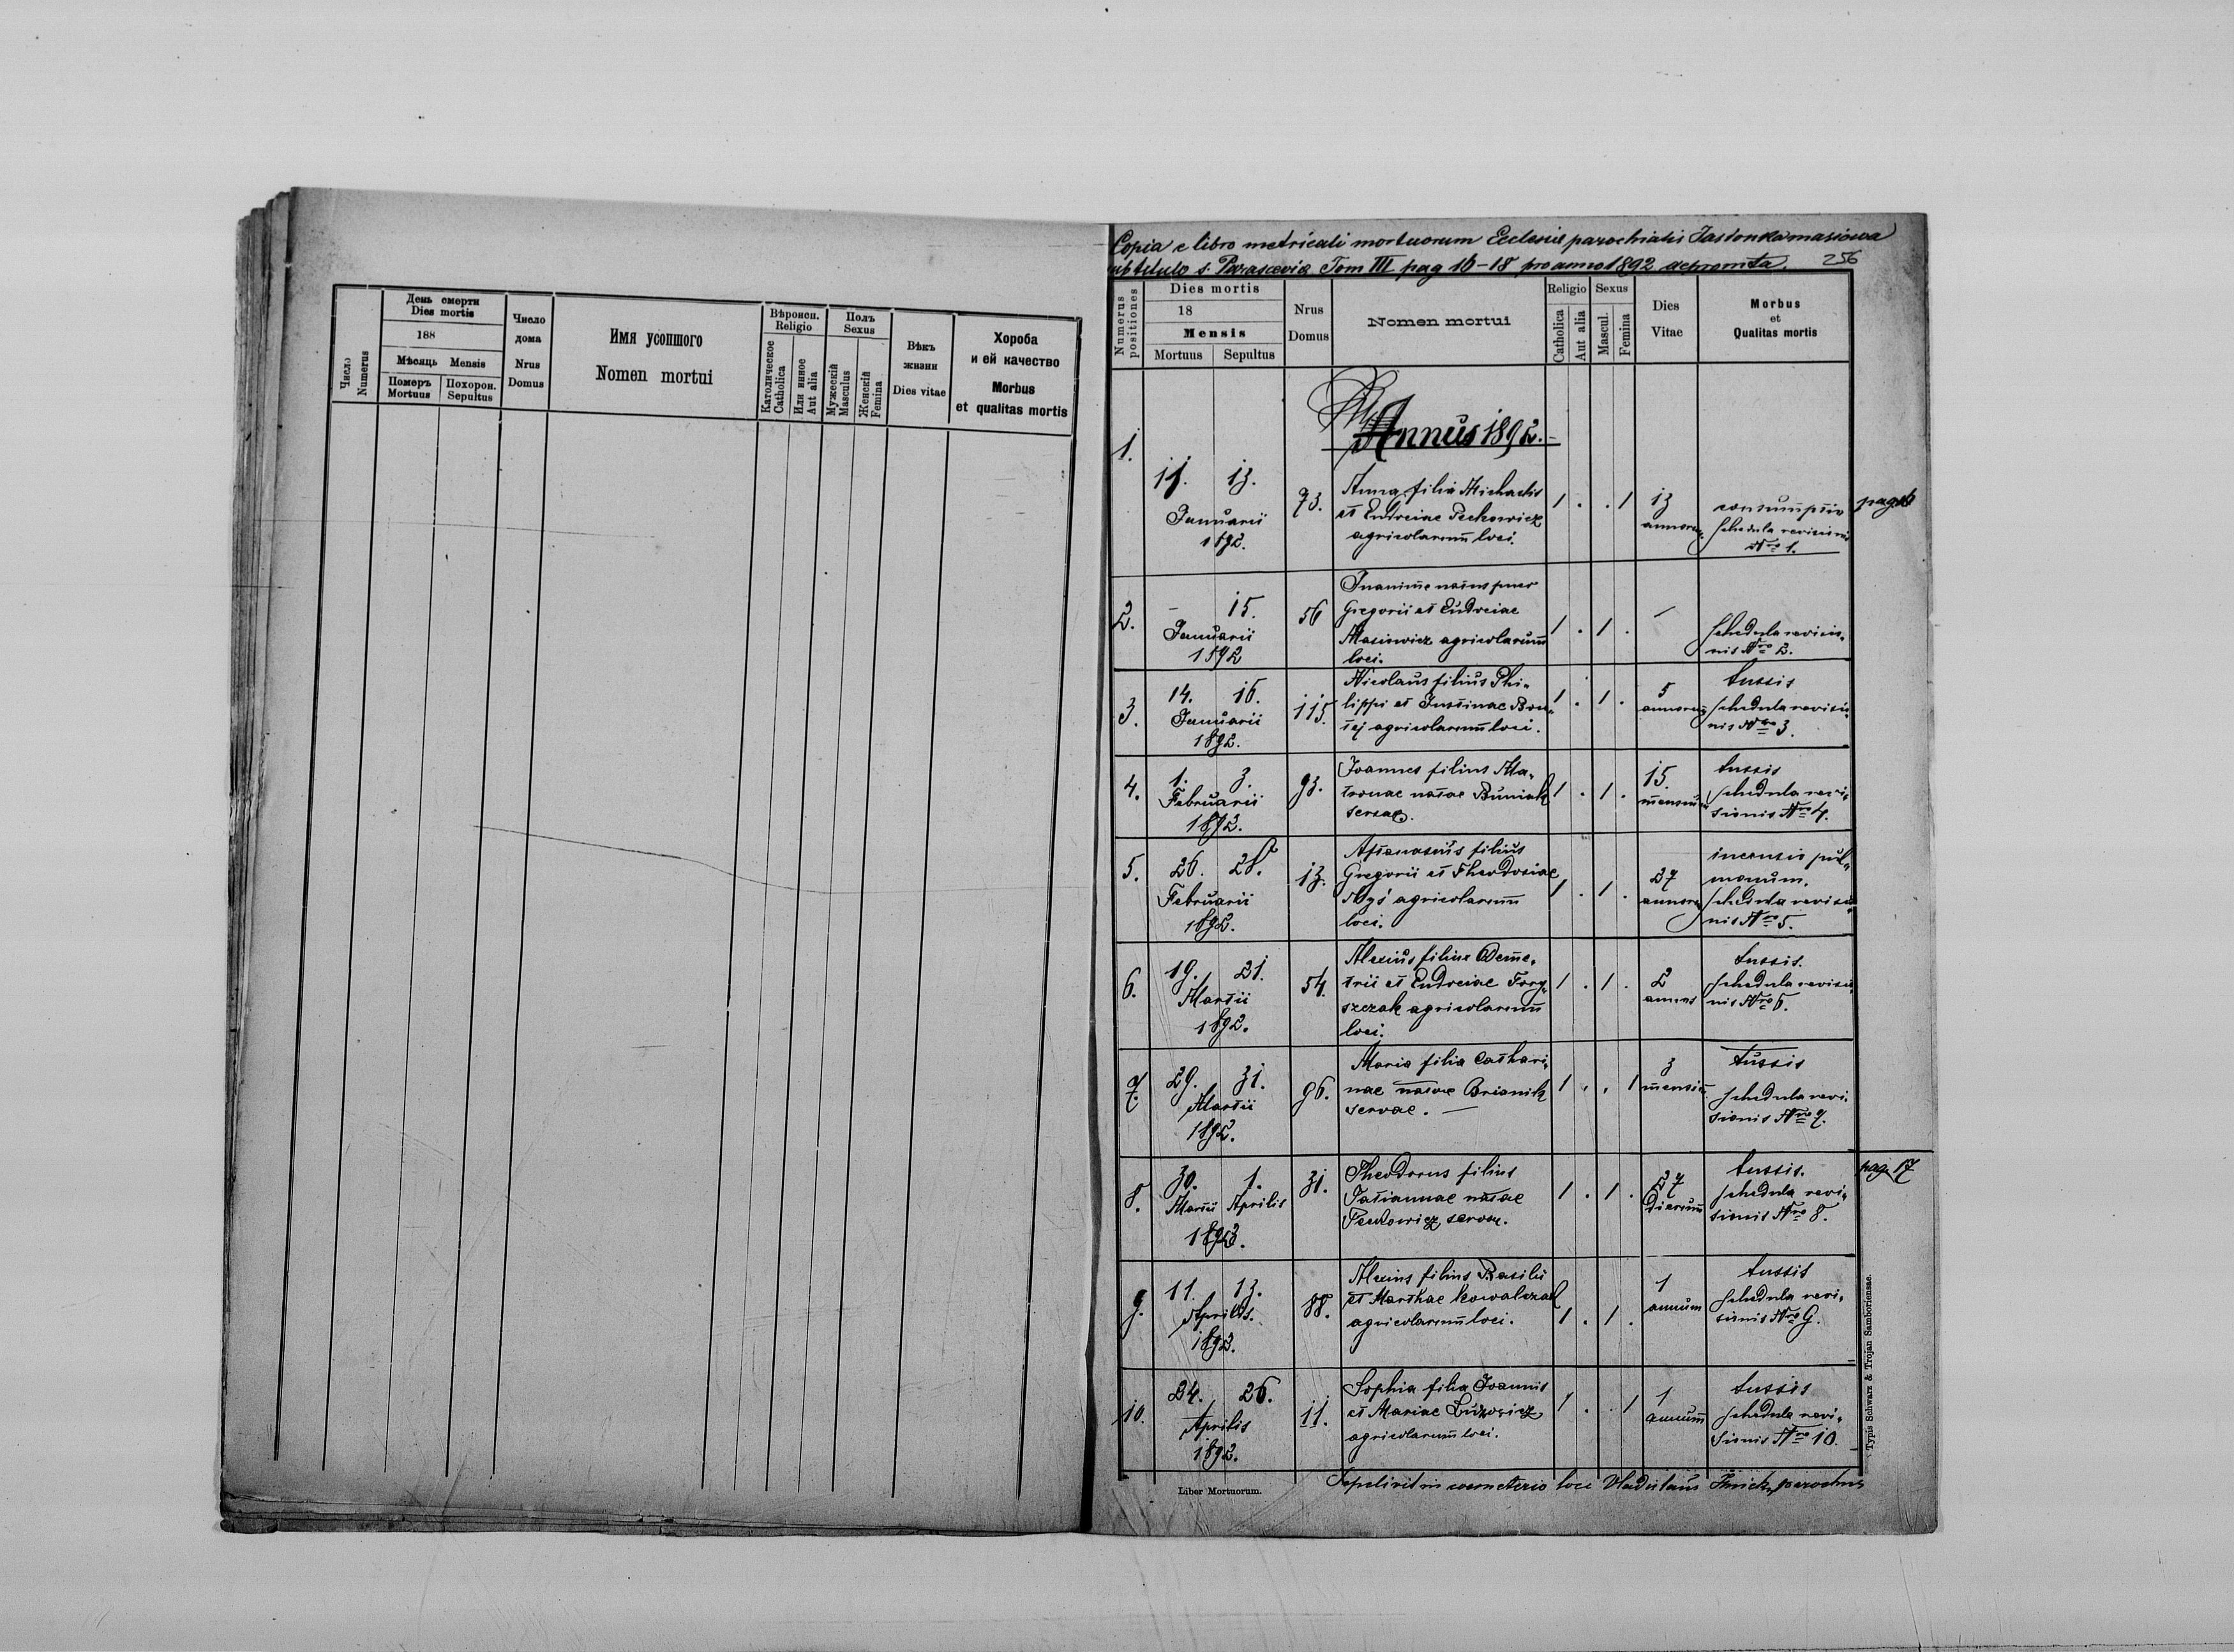 Число
Numerus
День смерти
Dies mortis
188
Мѣсяць Mensis
Померъ
Mortuus
Похорон.
Sepultus
Число
дома
Nrus
Domus
Имя усопшого
Nomen mortui
Вѣроисп.
Religio
Католическое
Catholica
Или инное
Aut alia
Полъ
Sexus
Мужескій
Masculus
Женскій
Femina
Вѣкъ
жизни
Dies vitae
Хороба
и ей качество
Morbus
et qualitas mortis
Copia e libro metricali mortuorum Ecclesiae parochialis Jastonkamasiowa
sub titulo s. Parasceviae Tom III pag 16-18 pro anno 1892 depromta. 256
Numerus
positiones
Dies mortis
18
Mensis
Mortuus Sepultus
Nrus
Domus
Nomen mortui
Religio
Catholica
Aut alia
Sexus
Mascul.
Femina
Dies
Vitae
Morbus
et
Qualitas mortis
Annus 1892.
1.
11. 13.
Januarii
1892.
73.
Anna filia Michaelis
et Eudociae Peckowicz
agricolarum loci.
1 . . 1
13
annorum
consumptio
schedula revisionis
Nro 1.
pag 16
2.
– 15.
Januarii
1892
56
Inanime natus puer
Gregorii et Eudociae
Masiowicz agricolarum
loci.
1 . 1 .
–
schedula revisio-
nis Nro 2.
3.
14. 16.
Januarii
1892.
115.
Nicolaus filius Phi-
lippi et Justinae
agricolarum loci.
1 . 1 .
5
annorum
tussis
schedula revisio-
nis Nro 3.
4.
1. 3.
Februarii
1892.
93.
Joannes filius Ma-
tronae natae Buniak
servae.
1 . 1 .
15.
mensium
tussis
schedula revi-
sionis Nro 4.
5.
26. 28.
Februarii
1892.
13.
Atanasius filius
Gregorii et Theodosiae
agricolarum
loci.
1 . 1 .
27
annorum
incensio pul-
monum.
schedula revisio-
nis Nro 5.
6.
19. 21.
Martii
1892.
54.
Alexius filius Deme-
trii et Eudociae Fory-
szczak agricolarum
loci.
1 . 1 .
2
annos
tussis.
schedula revisio-
nis Nro 6.
7.
29. 31.
Martii
1892.
96.
Maria filia Cathari-
nae natae Brianik
servae. –
1 . . 1
3
mensium
tussis
schedula revi-
sionis Nro 7.
8.
30. 1.
Martii Aprilis
1892.
31.
Theodorus filius
Tatiannae natae
servae.
1 . 1 .
27
dierum
tussis.
schedula revi-
sionis Nro 8.
pag. 17
9.
11. 13.
Aprilis.
1892.
88.
Alexius filius Basilii
et Marthae Kowalczak
agricolarum loci.
1 . 1 .
1
annum
tussis
schedula revi-
sionis Nro 9.
10.
24. 26.
Aprilis
1892.
11.
Sophia filia Joannis
et Mariae
agricolarum loci.
1 . . 1
1
annum
tussis
schedula revi-
sionis Nro 10.
Sepelivit in coemeterio loci Vladislaus parochus
Liber Mortuorum.
Typis Schwarz & Trojan Samboriensae.